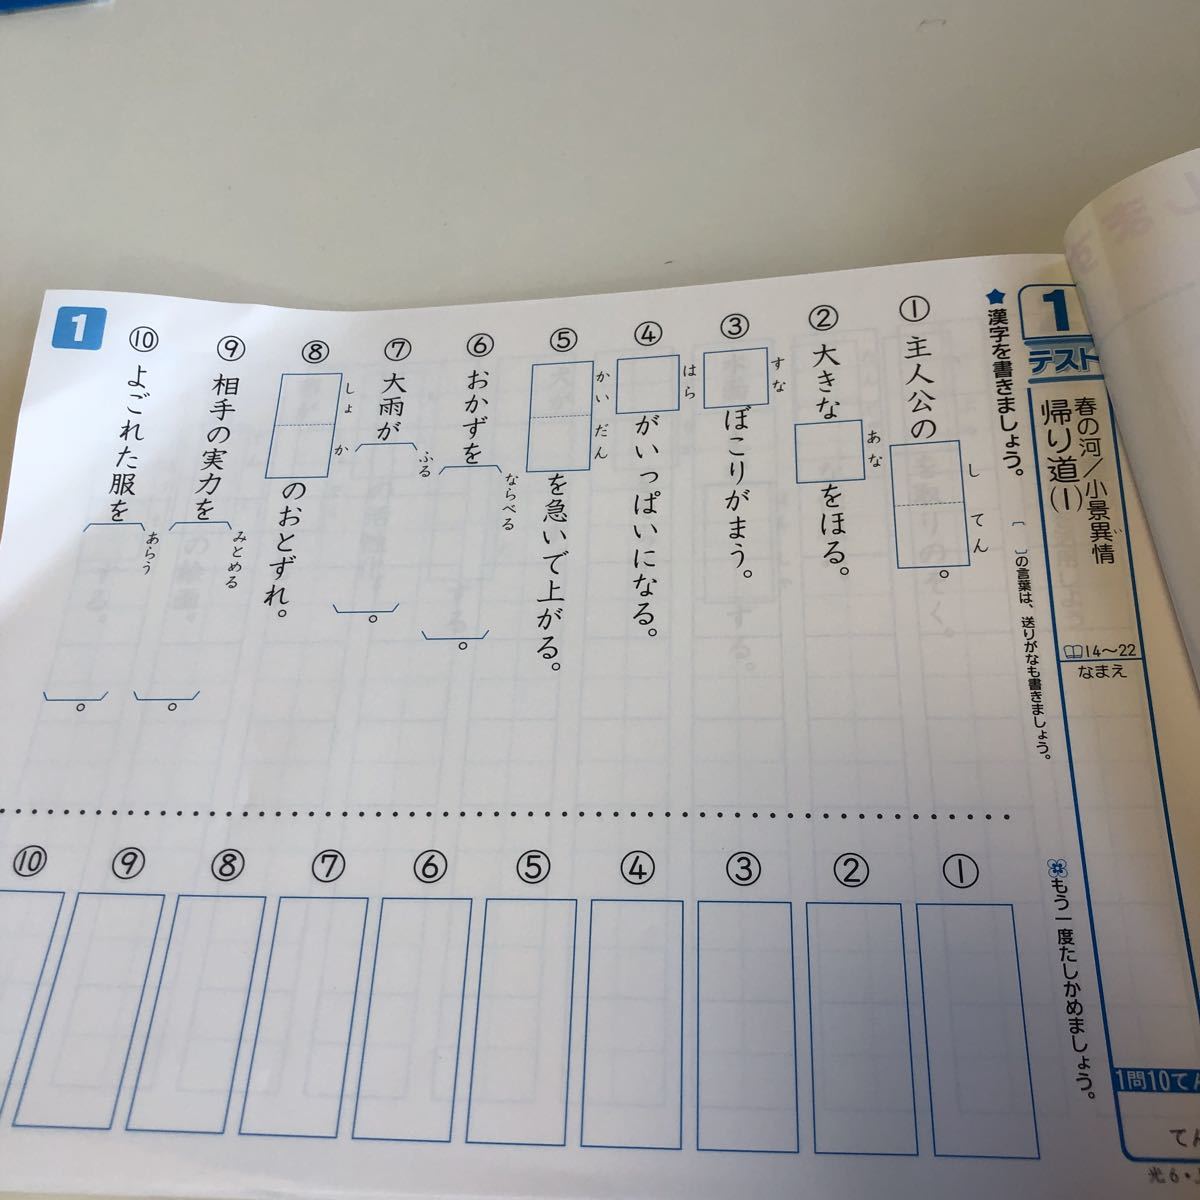 1
テスト
春の河／小景異情
帰り道(1)
14〜22
なまえ
1問10てん
てん
光6・
★漢字を書きましょう。
〔 〕の言葉は、送りがなも書きましょう。
① 主人公の してん 。
② 大きな あな をほる。
③ すな ぼこりがまう。
④ はら がいっぱいになる。
⑤ かいだん を急いで上がる。
⑥ おかずを ならべる 。
⑦ 大雨が ふる 。
⑧ しょか のおとずれ。
⑨ 相手の実力を みとめる 。
⑩ よごれた服を あらう 。
1
もう一度たしかめましょう。
①
②
③
④
⑤
⑥
⑦
⑧
⑨
⑩